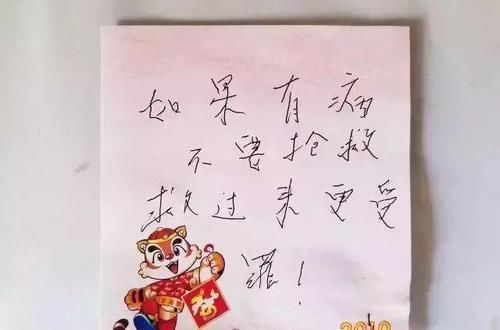 如果有病
不要抢救
救过来更受
罪！
福